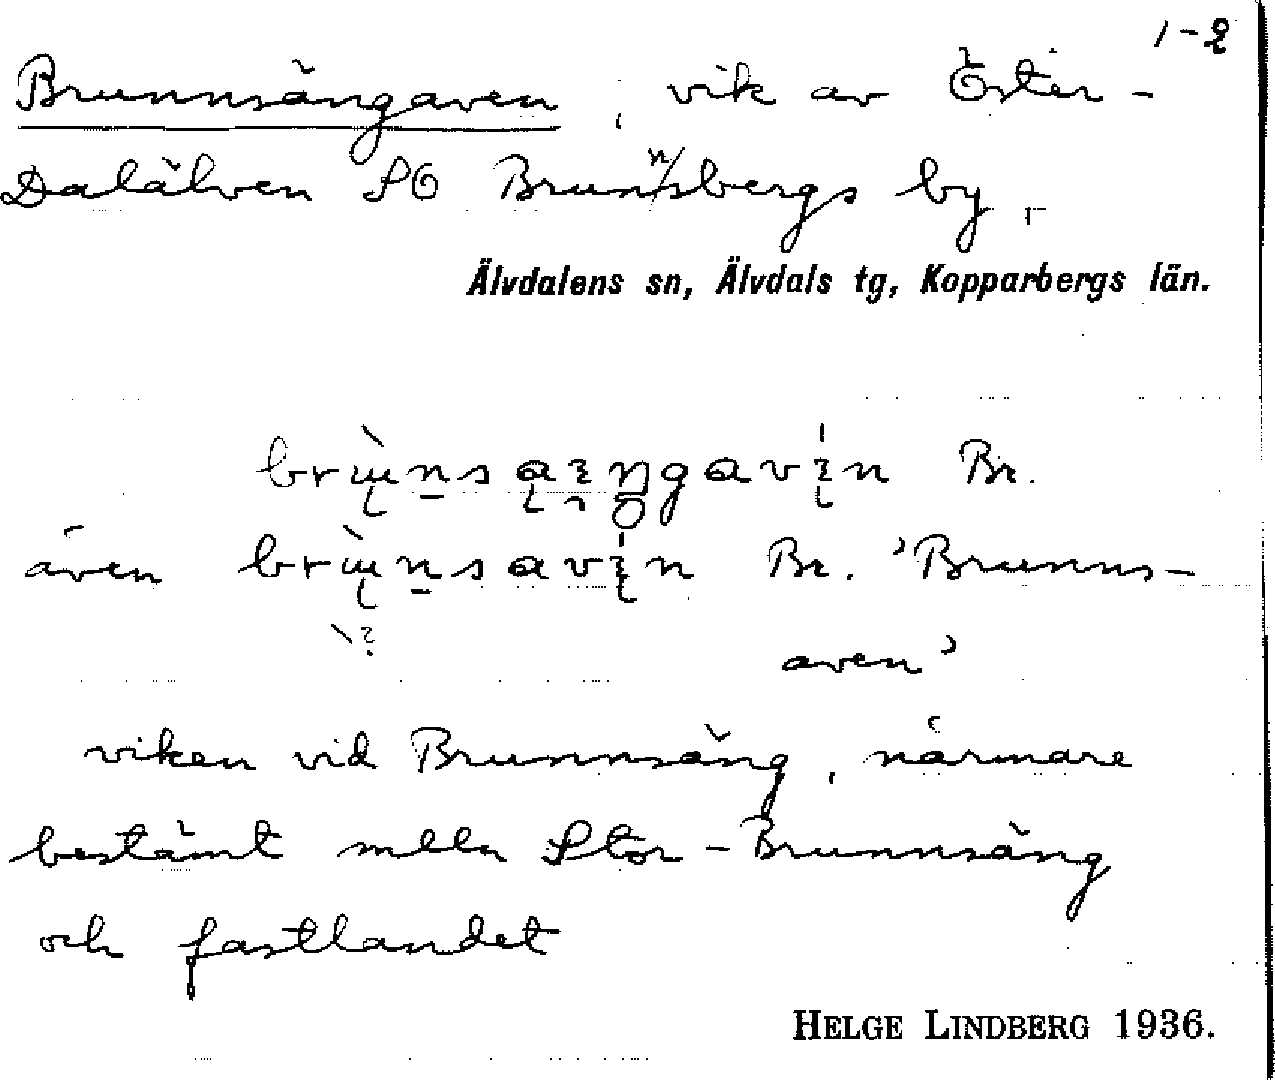 1-2
Brunnsängaven, vik av Öster-
Dalälven SO Brunnsbergs by.
Älvdalens sn, Älvdals tg, Kopparbergs län.
Br.
även Br. 'Brunns-
aven'
viken vid Brunnsäng, närmare
bestämt mella Stor-Brunnsäng
och fastlandet
HELGE LINDBERG 1936.